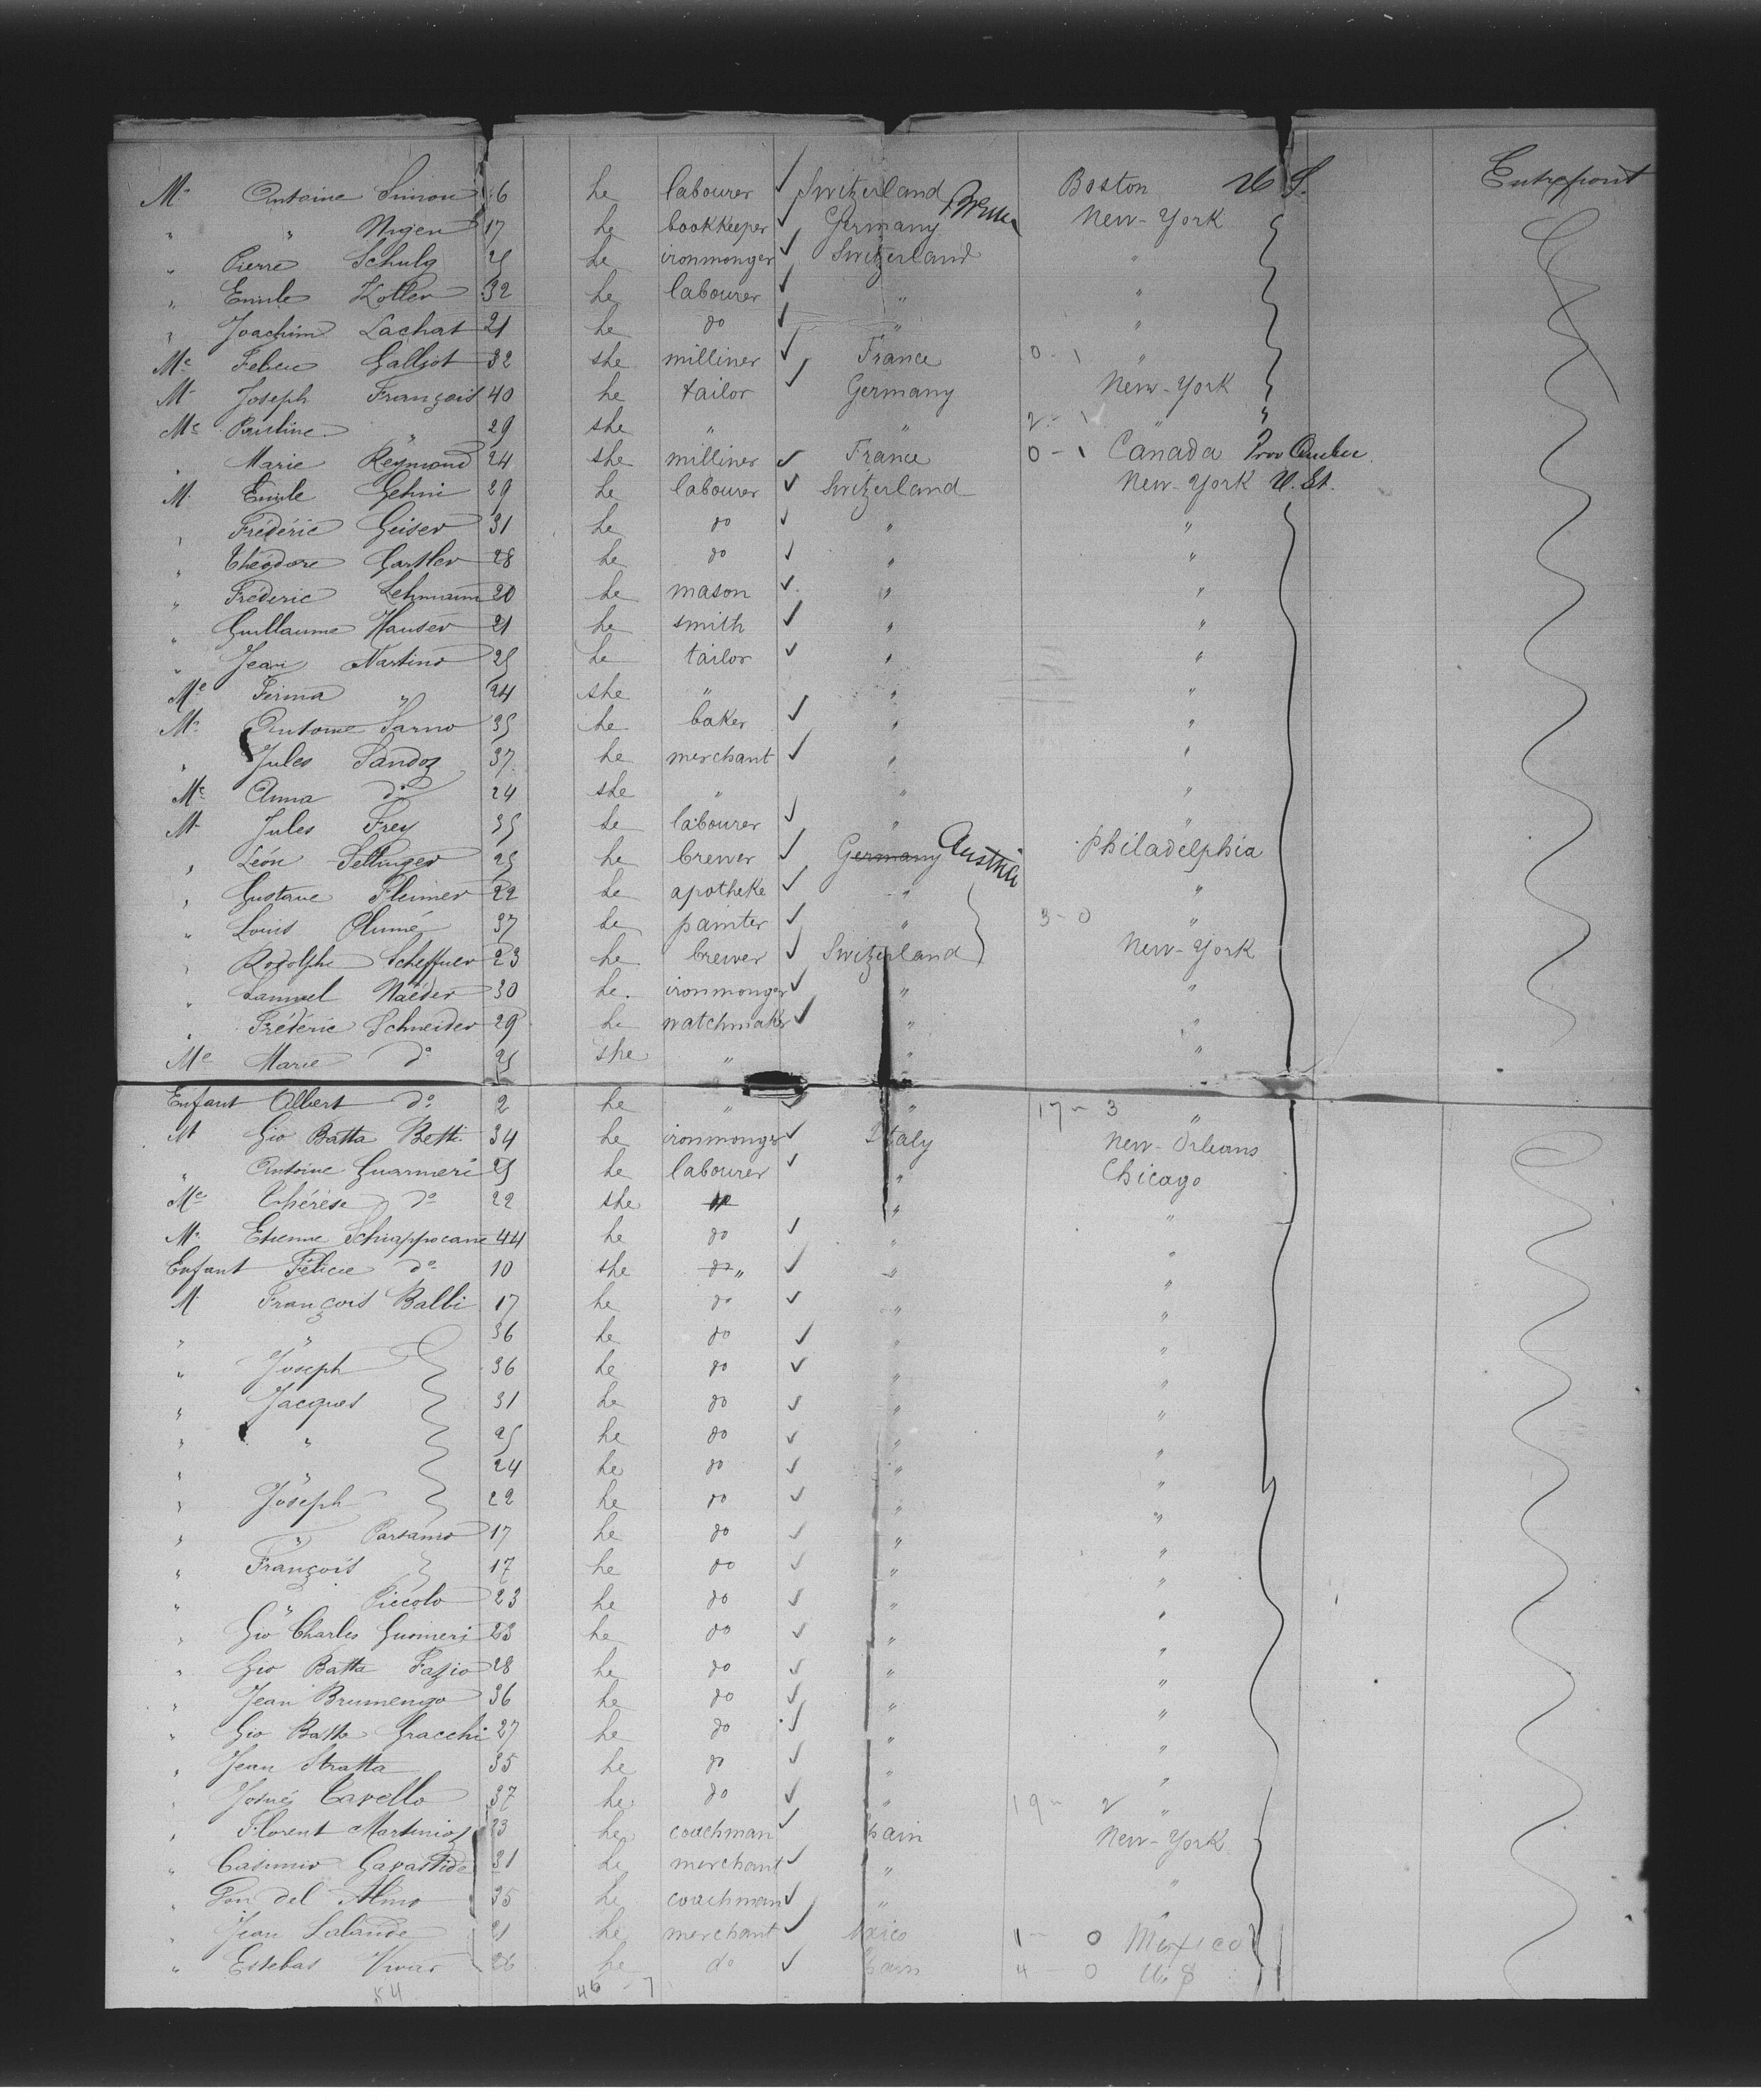 Mr Antoine Simon 6 he labourer ✓ Switzerland Boston U S. Entrepont
" " 17 he bookkeeper ✓ Germany New-York
" Pierre Schulz 25 he ironmonger ✓ Switzerland "
" Emile Kotler 32 he labourer ✓ " "
" Joachim Lachat 21 he do ✓ " "
Me Galliot 32 she milliner ✓ France 0 - 1 "
Mr Joseph François 40 he tailor ✓ Germany New-York
Me " 29 she " " 2 - 1 "
" Marie Reymond 24 she milliner ✓ France 0 - 1 Canada Prov Quebec
M. Emile Gehni 29 he labourer ✓ Switzerland New-York U. St.
" Frédéric Geiser 31 he do ✓ " "
" Théodore 28 he do ✓ " "
" Fréderic Lehmann 20 he mason ✓ " "
" Guillaume Hauser 21 he smith ✓ " "
" Jean Martino 25 he tailor ✓ " "
Me Firma " 24 she " " "
Mr Antoine Sarno 35 he baker ✓ " "
" Jules Sandoz 37 he merchant ✓ " "
Me Anna do 24 she " " "
Mr Jules Frey 35 he labourer ✓ " "
" Léon 25 he brewer ✓ Germany Austria Philadelphia
" Gustave 22 he apotheke ✓ " "
" Louis Plumé 37 he painter ✓ " 3 - 0 "
" Rodolphe Scheffner 23 he brewer ✓ Switzerland New-York
" Samuel Naëder 30 he ironmonger ✓ " "
" Frédéric Schneider 29 he watchmaker ✓ " "
Me Marie do 25 she " " "
Enfant Albert do 2 he " ✓ " 17 - 3 "
M Gio Batta Betti 34 he ironmonger ✓ Italy New-Orleans
" Antoine Guarneri 25 he labourer ✓ " Chicago
Me Thérèse do 22 she " " "
Mr Etienne Schiappocane 44 he do ✓ " "
Enfant Félicie do 10 she do " ✓ " "
M François Balbi 17 he do ✓ " "
" " 36 he do ✓ " "
" Joseph 36 he do ✓ " "
" Jacques 31 he do ✓ " "
" " 25 he do ✓ " "
" " 24 he do ✓ " "
" Joseph 22 he do ✓ " "
" " Parsamo 17 he do ✓ " "
" François 17 he do ✓ " "
" " Piccolo 23 he do ✓ " "
" Gio Charles Guomeri 23 he do ✓ " "
" Gio Batta Fazio 28 he do ✓ " "
" Jean Brumengo 36 he do ✓ " "
" Gio Batta Gracchi 27 he do ✓ " "
" Jean Stratta 35 he do ✓ " "
" Josué Cavello 37 he do ✓ " 19 - 2 "
" Florent Martinioz 23 he coachman ✓ pain New-York
" Casimir Gavastide 31 he merchant ✓ " "
" del Almo 35 he coachman ✓ " "
" Jean Lalande 21 he merchant ✓ 1 - 0 Mexico
" Estebas Vivar 26 he do ✓ 4 - 0 U. S
54 46 - 7